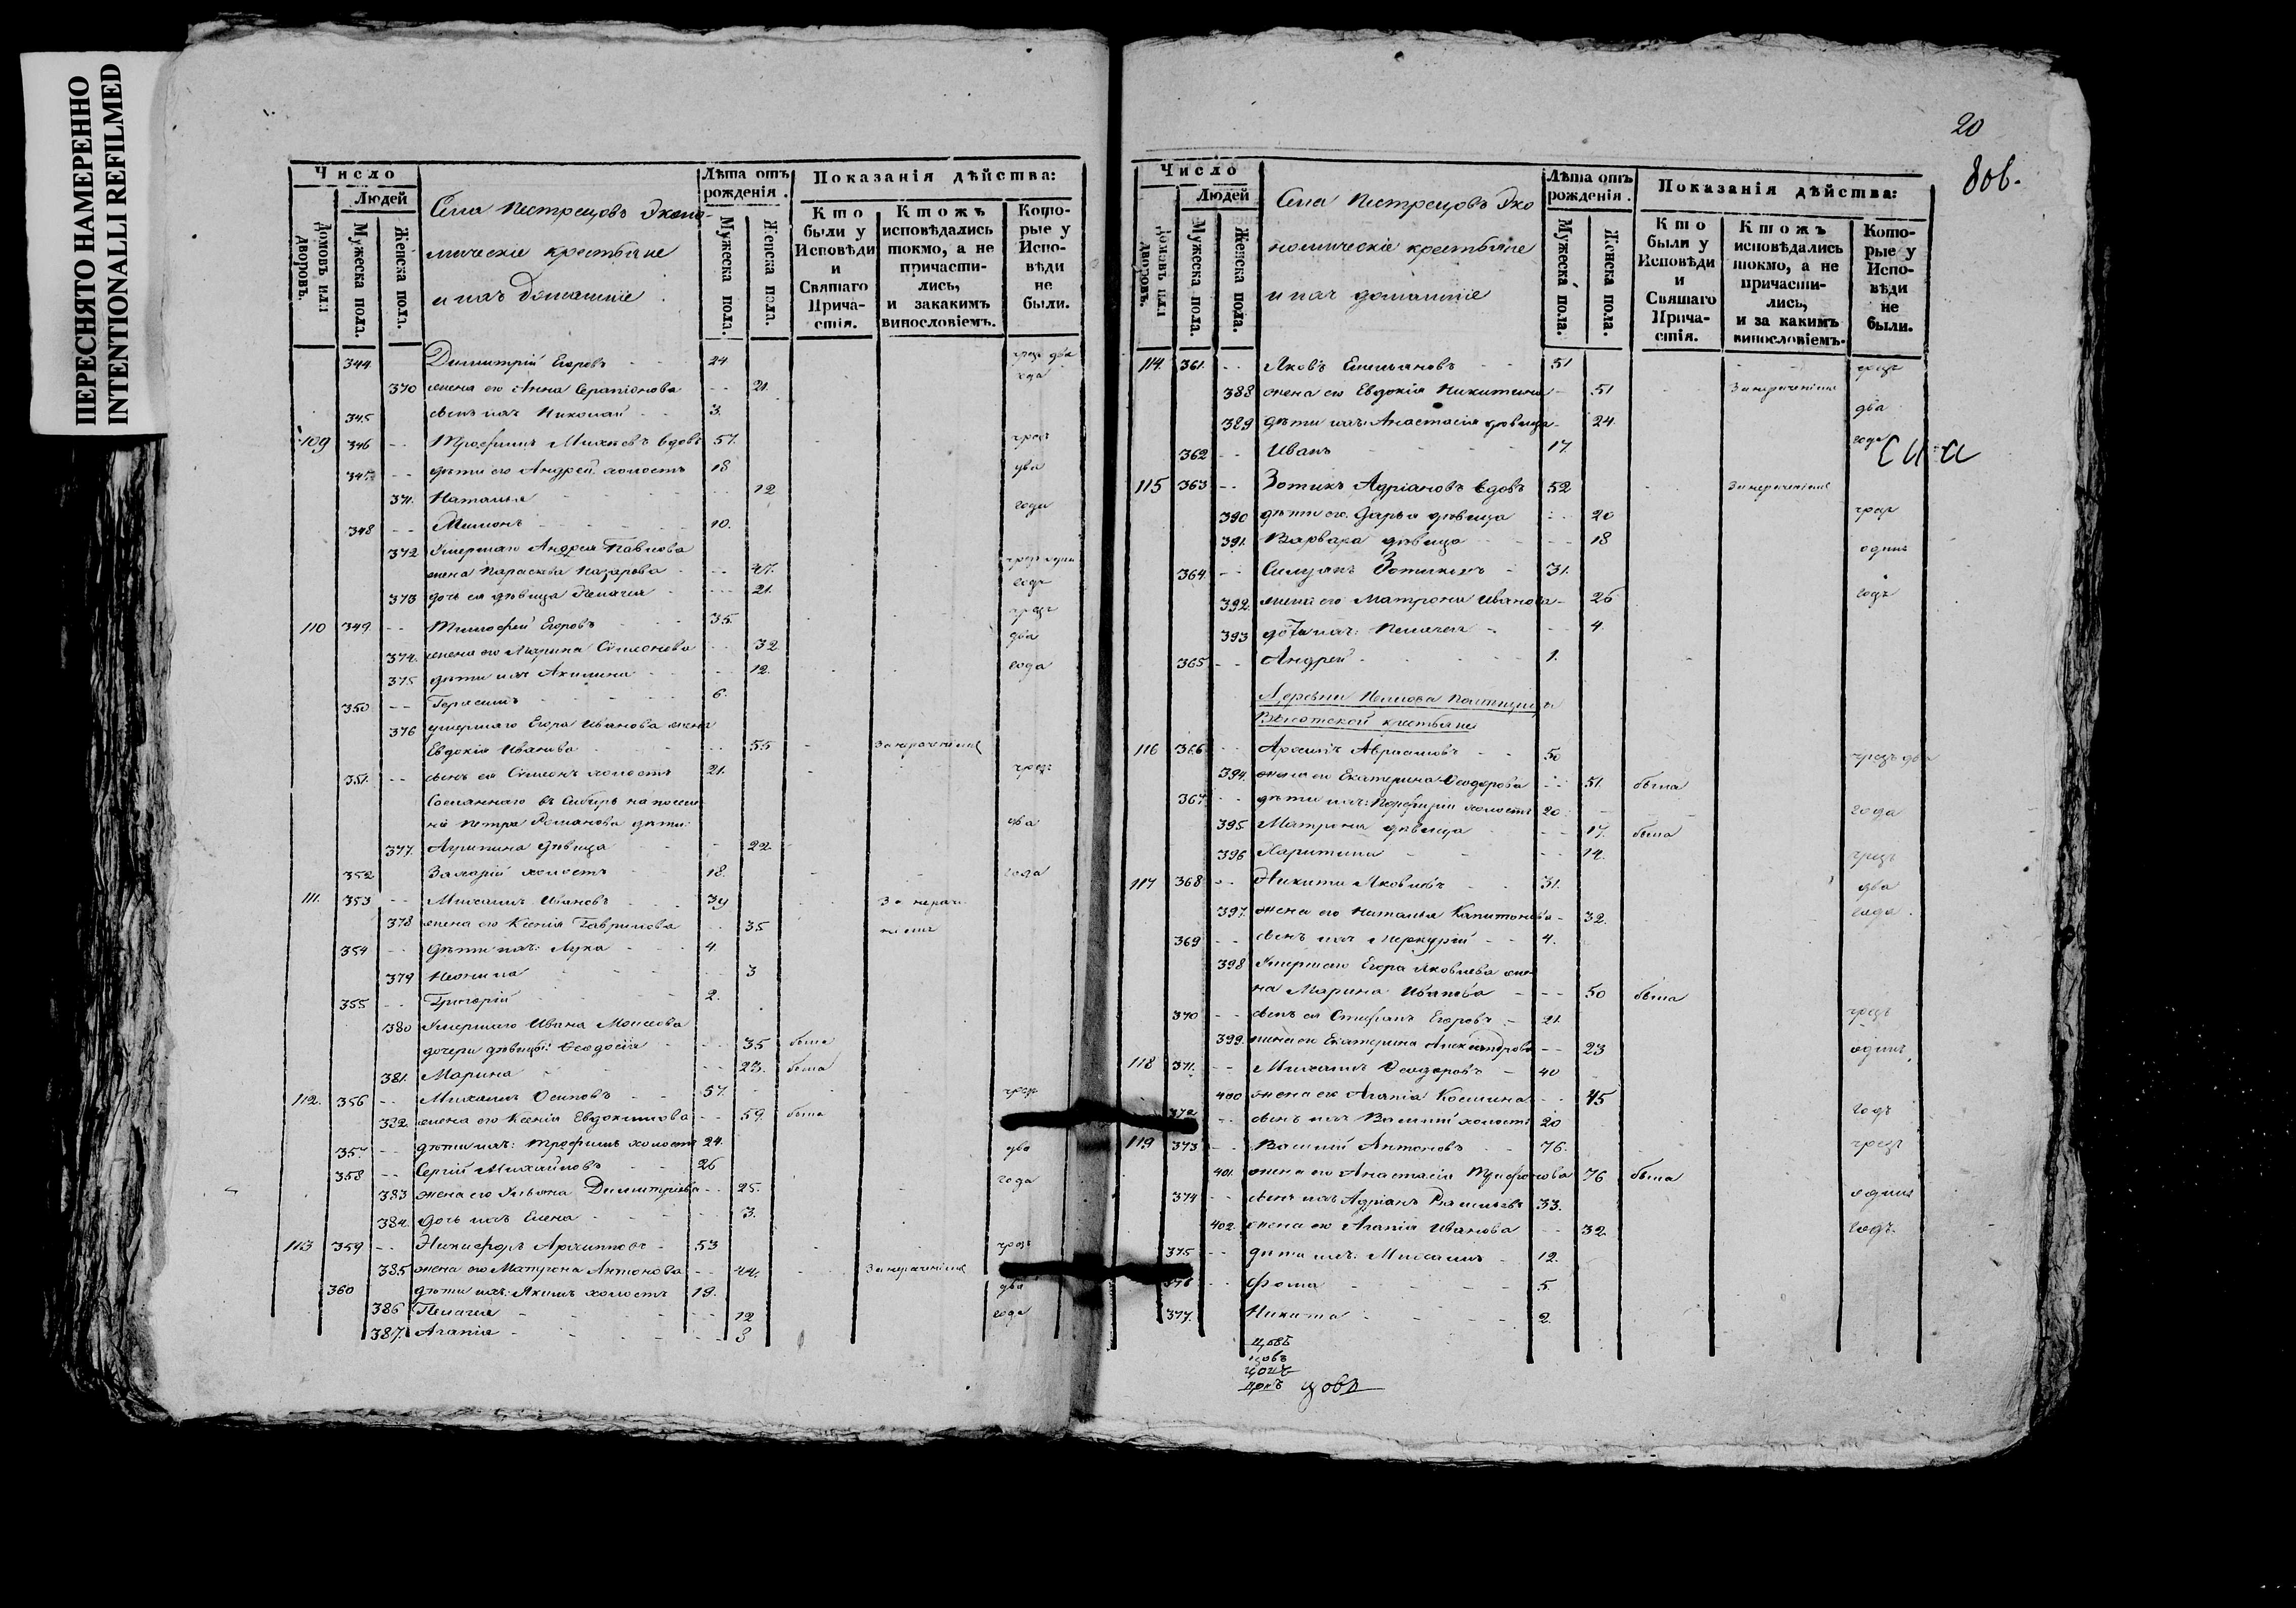 ПЕРЕСНЯТО НАМЕРЕННО
INTENTIONALLI REFILMED
Число
Людей
Домовъ или дворовъ.
Мужеска пола.
Женска пола.
Села Пестрецовъ Эконо-
мическіе крестьяне
и ихъ домашніе
Лѣта отъ рожденія.
Мужеска пола.
Женска пола.
Показанія дѣйства:
Кто были у Исповѣди и Святаго Прича-стія.
Ктожъ исповѣдались токмо, а не причасти-лись, и закакимъ винословіемъ.
Кото-рые у Испо-вѣди не были.
344. Димитрій Егоровъ 24 чрезъ два
370 жена его Анна Серапіонова 21. года
345. сынъ ихъ Николай 3.
109 346 Трофимъ вдовъ 57. чрезъ
347. дѣти его Андрей холостъ 18 два
371. Наталья 12
348 10. года
372 Умершаго Андрея Павлова
жена Параскева Назарова 47. чрезъ одинъ
373 дочь ея дѣвица Пелагія 21. годъ
110 349. Тимофей Егоровъ 35. чрезъ
374. жена его Марина Симеонова 32. два
375 дѣти ихъ Акилина 12. года
350 Герасимъ 6.
376 умершаго Егора Иванова жена
Евдокія Иванова 55 За нерачѣніемъ
351. сынъ ея Симеонъ холостъ 21. чрезъ
Сосланнаго въ Сибирь на поселе
ніе Петра Романова дѣти: два
377. Агрипина дѣвица 22.
352 холостъ 18. года
111. 353 Михаилъ Ивановъ 39 За нерачѣ
378 жена его Ксенія Гаврилова 35 ніемъ
354 дѣти ихъ: Лука 4.
379 Неонила 3
355 Григорій 2.
380 Умершаго Ивана Моисеева
дочери дѣвицы: Ѳеодосія 35 была
381. Марина 23. была
112. 356 Михаилъ Осиповъ 57. чрезъ
382. жена его Ксенія Евдокимова 59. была
357 дѣти ихъ: Трофимъ холостъ 24. два
358 Сергій Михайловъ 26 года
383 жена его Ульяна Димитріева 25.
384. дочь ихъ Елена 3.
113 359 Никифоръ Архиповъ 53 чрезъ
385 жена его Матрона Антонова 44. За нерачѣніемъ
360 дѣти ихъ: Якимъ холостъ 19. два
386 Пелагія 12 года
387. Агапія 3
20
Число
Людей
Домовъ или дворовъ.
Мужеска пола.
Женска пола.
Села Пестрецовъ Эко
номическіе крестьяне
и ихъ домашніе
Лѣта отъ рожденія.
Мужеска пола.
Женска пола.
Показанія дѣйства:
Кто были у Исповѣди и Святаго Прича-стія.
Ктожъ исповѣдались токмо, а не причасти-лись, и за какимъ винословіемъ.
Кото-рые у Испо-вѣди не были.
114. 361. Яковъ Емельяновъ 51 чрезъ
388 жена его Евдокія Никитина 51 За нерачѣніемъ
389 дѣти ихъ: Анастасія дѣвица 24. два
362 Иванъ 17. года
115 363 Зотикъ Адріановъ вдовъ 52 За нерачѣніемъ
390 дѣти его: Дарья дѣвица 20 чрезъ
391. Варвара дѣвица 18 одинъ
364. Зотиковъ 31.
392. жена его Матрона Иванова 26 годъ
393 дѣти ихъ: Пелагея 4.
365 Андрей 1.
Деревни
крестьяне
116 366 Архипъ Абрамовъ 50 чрезъ два
394. жена его Екатерина Ѳеодорова 51. была
367. дѣти ихъ: Порфирій холостъ 20 года
395. Матрона дѣвица 17. была
396 Харитина 14. чрезъ
117 368 Никита Яковлевъ 31. два
397. жена его Наталья Капитонова 32. года
369 сынъ ихъ Меркурій 4.
398 Умершаго Егора Яковлева же
на Марина Иванова 50 была
370 сынъ ея Стефанъ Егоровъ 21. чрезъ
399. жена его Екатерина Александрова 23 одинъ
118 371. Михаилъ Ѳеодоровъ 40
400 жена его Агапія Косьмина 45
372 сынъ ихъ Василій холостъ 20 годъ
119 373 Василій Антоновъ 76. чрезъ
401. жена его Анастасія Трифонова 76 была
374 сынъ ихъ Адріанъ Васильевъ 33. одинъ
402. жена его Агапія Иванова 32 годъ.
375 дѣти ихъ: Михаилъ 12.
376 Фома 5.
377. Никита 2.